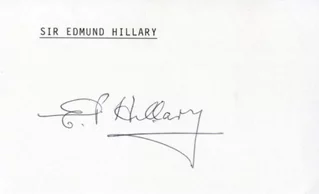 SIR EDMUND HILLARY
E.P Hillary